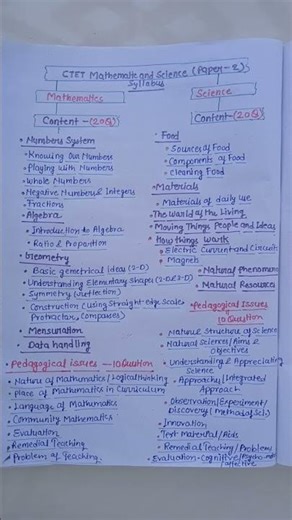 CTET Mathematic and Science (Paper-2)
Syllabus
Mathematics
Content-(20Q)
• Numbers System
- Knowing Our Numbers
- Playing with Numbers
- Whole Numbers
- Negative Numbers & Integers
- Fractions
• Algebra
- Introduction to Algebra
- Ratio & Proportion
• Geometry
- Basic geometrical ideas (2-D)
- Understanding Elementary Shapes (2-D & 3-D)
- Symmetry (reflection)
- Construction (using Straight-edge, Scale
Protractor, Compases)
• Mensuration
• Data handling
Pedagogical issues - 10 Question
- Nature of Mathematics/Logical thinking
- Place of Mathematics in Curriculum
- Language of Mathematics
- Community Mathematics
- Evaluation
- Remedial Teaching
- Problem of Teaching
Science
Content-(20Q)
• Food
- Sources of Food
- Components of Food
- Cleaning Food
• Materials
- Materials of daily use
• The World of the Living
• Moving Things People and Ideas
• How things Work
- Electric Current and Circuits
- Magnets
• Natural Phenomena
• Natural Resources
• Pedagogical Issues
10 Question
- Nature & Structure of Science
- Natural Science/Aims &
Objectives
- Understanding & Appreciating
Science
- Approaches/Integrated
Approach
- Observation/Experiment/
Discovery (Method of Sci.)
- Innovation
- Text Material/Aids
- Remedial Teaching/Problems
- Evaluation - Cognitive/Psycho
/affective